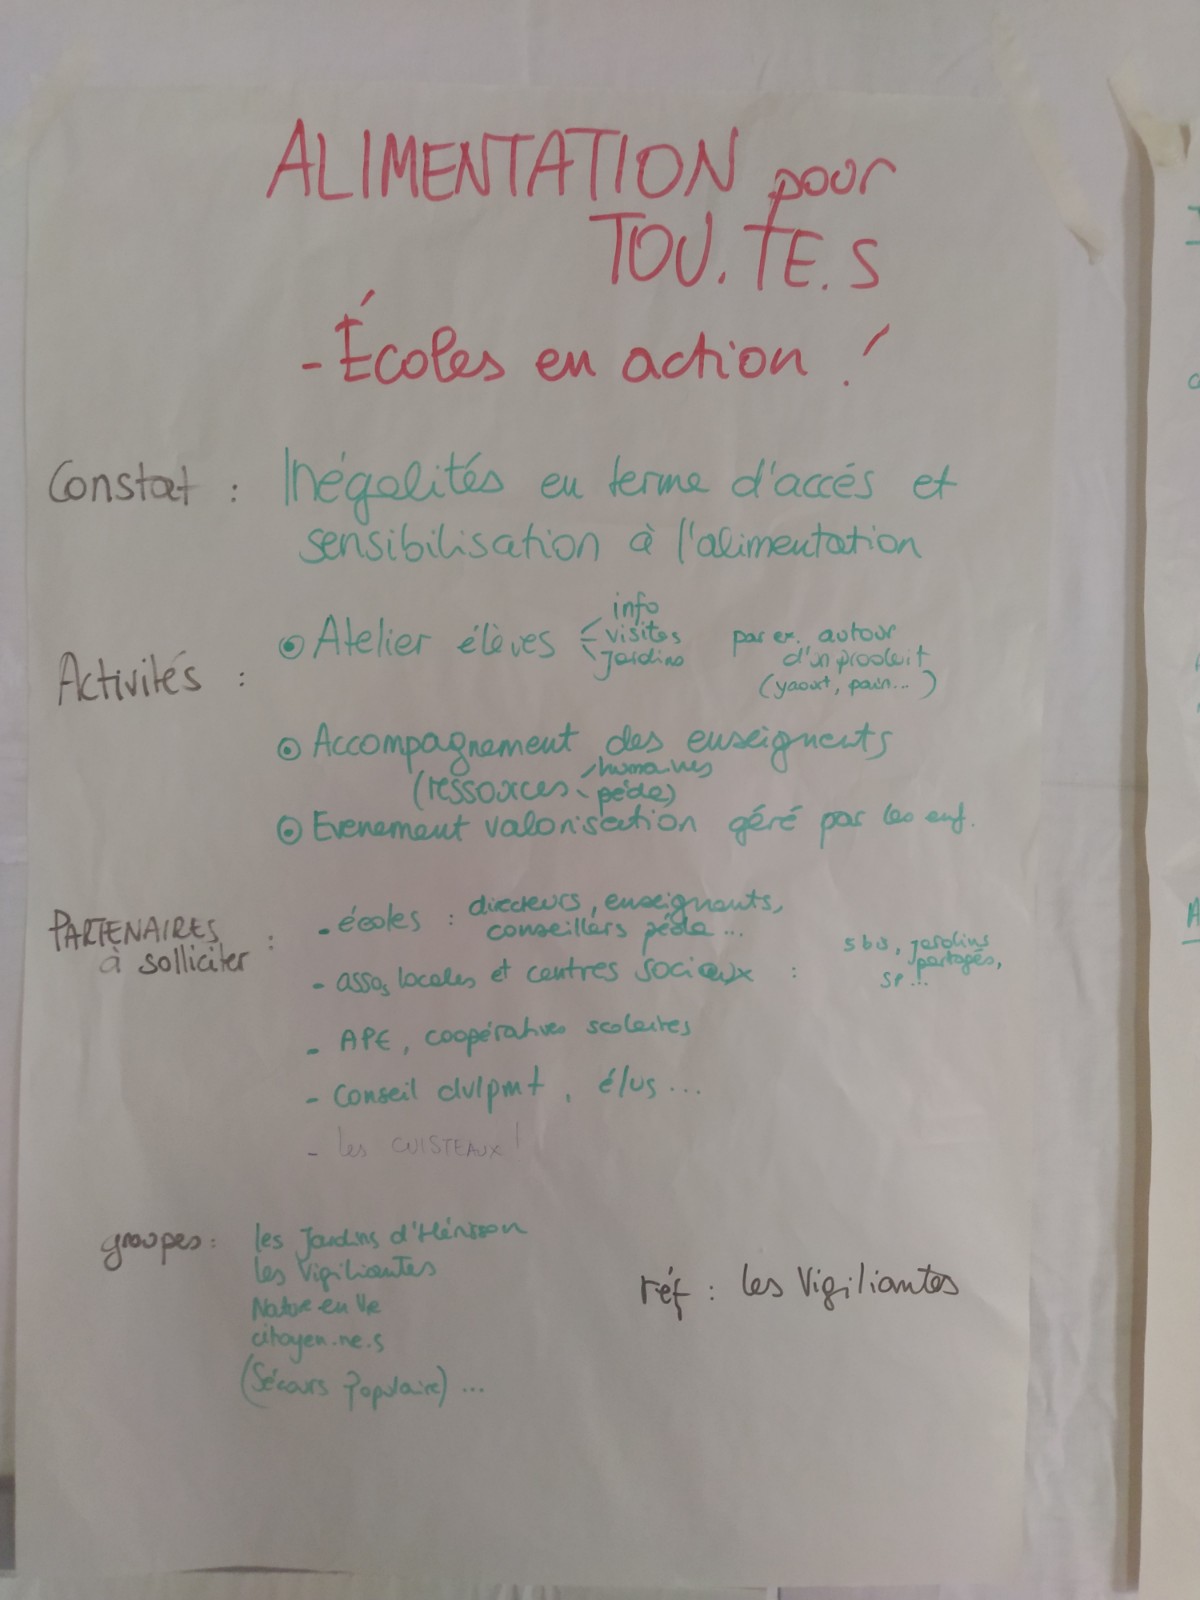 ALIMENTATION pour
TOU.TE.S
- Écoles en action !
Constat : Inégalités en terme d'accés et
sensibilisation à l'alimentation
Activités :
Atelier élèves
info
visites
jardins
par ex. autour
d'un produit
(yaourt, pain...)
Accompagnement des enseignents
(ressources
humaines
péda)
Evenement valorisation géré par les enf.
PARTENAIRES
à solliciter :
- écoles : directeurs, enseignants,
conseillers péda...
- assos locales et centres sociaux :
5 bis, jardins
partagés,
SP...
- APE, coopératives scolaires
- Conseil dvlpmt, élus...
- les CUISTEAUX !
groupes : les Jardins d'Hérisson
les Vigiliantes
Nature en Vie
citoyen.ne.s
(Sécours Populaire) ...
réf : les Vigiliantes